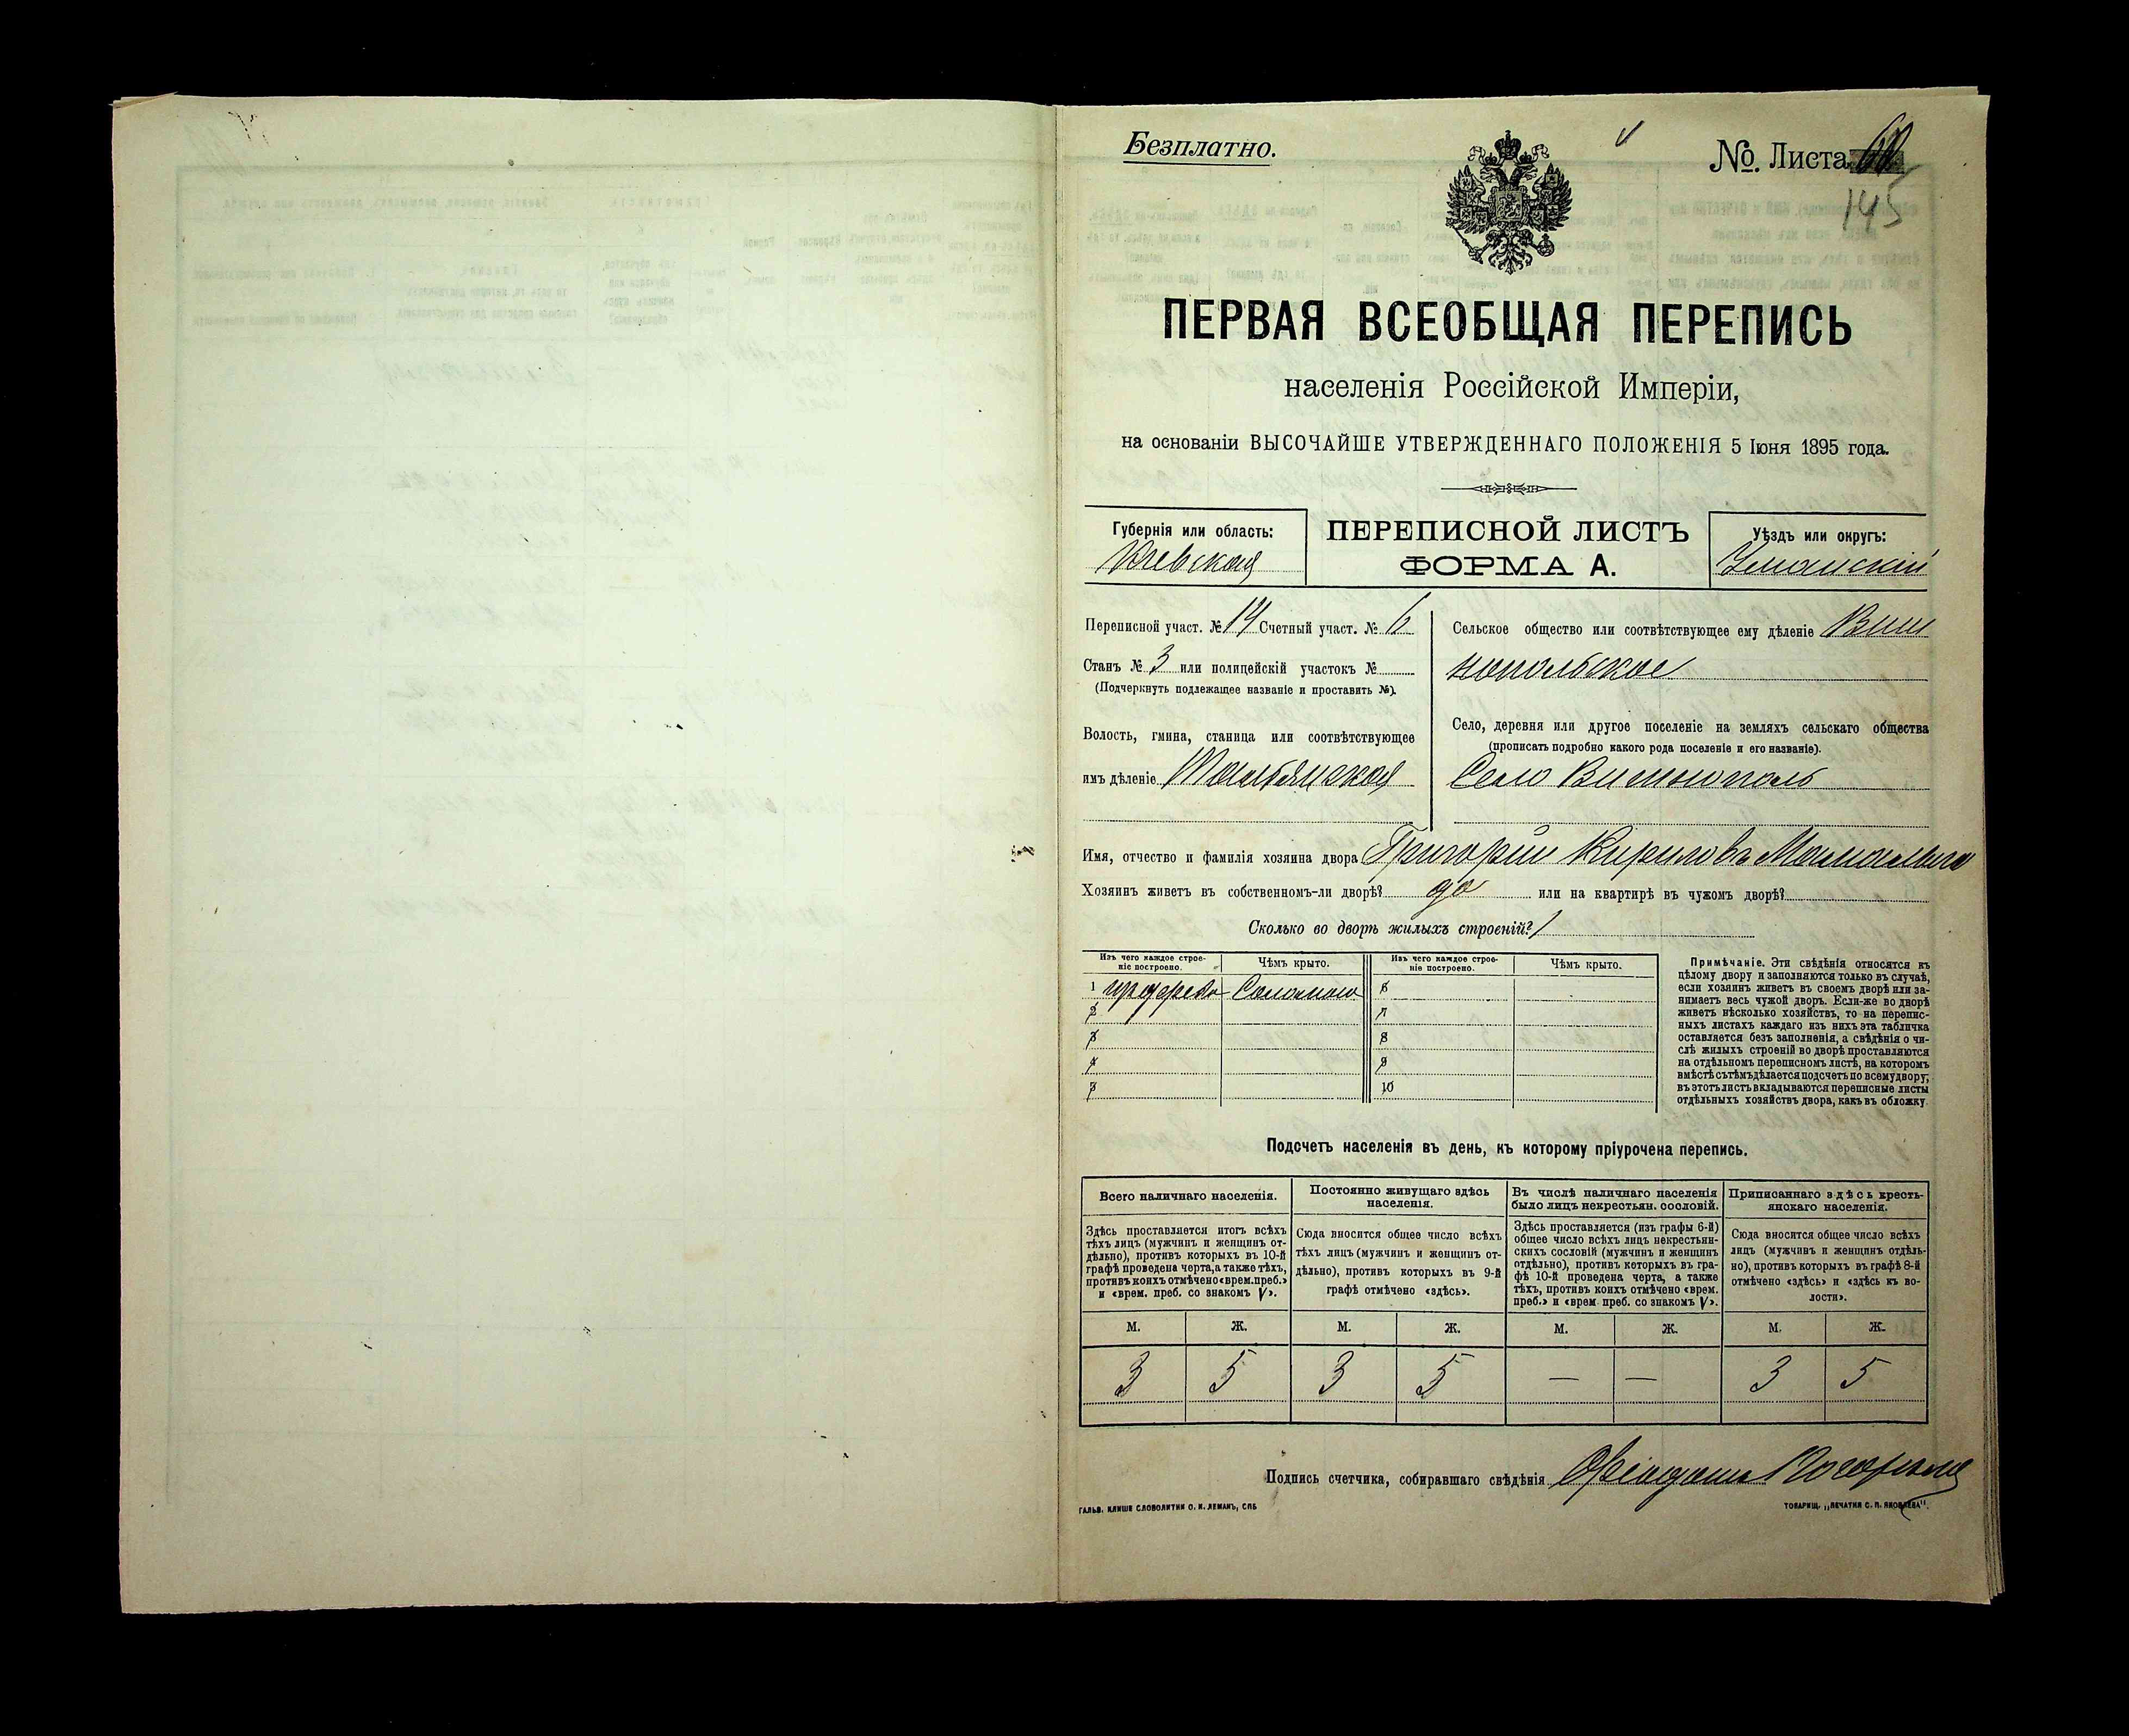 Безплатно.
№ Листа
145
ПЕРВАЯ ВСЕОБЩАЯ ПЕРЕПИСЬ
населенія Россійской Имперіи,
на основаніи ВЫСОЧАЙШЕ УТВЕРЖДЕННАГО ПОЛОЖЕНІЯ 5 Іюня 1895 года.
Губернія или область:
Кіевская
ПЕРЕПИСНОЙ ЛИСТЪ
ФОРМА А.
Уѣздъ или округъ:
Уманскій
Переписной участ. № 14 Счетный участ. № 6
Станъ № 3 или полицейскій участокъ №
(Подчеркнуть подлежащее названіе и проставить №).
Волость, гмина, станица или соотвѣтствующее
имъ дѣленіе Тальянская
Сельское общество или соотвѣтствующее ему дѣленіе Виш
нопольское
Село, деревня или другое поселеніе на земляхъ сельскаго общества
(прописать подробно какого рода поселеніе и его названіе).
Село Вишнополь
Имя, отчество и фамилія хозяина двора Григорій Кириловъ
Хозяинъ живетъ въ собственномъ-ли дворѣ? да или на квартирѣ въ чужомъ дворѣ?
Сколько во дворѣ жилыхъ строеній? 1
Изъ чего каждое строе-
ніе построено.
Чѣмъ крыто.
Изъ чего каждое строе-
ніе построено.
Чѣмъ крыто.
1 изъ дерева Соломою 6
2 7
3 8
4 9
5 10
Примѣчаніе. Эти свѣдѣнія относятся къ
цѣлому двору и заполняются только въ случаѣ,
если хозяинъ живетъ въ своемъ дворѣ или за-
нимаетъ весь чужой дворъ. Если-же во дворѣ
живетъ нѣсколько хозяйствъ, то на перепис-
ныхъ листахъ каждаго изъ нихъ эта табличка
оставляется безъ заполненія, а свѣдѣнія о чи-
слѣ жилыхъ строеній во дворѣ проставляются
на отдѣльномъ переписномъ листѣ, на которомъ
вмѣстѣ съ тѣмъ дѣлается подсчетъ по всему двору;
въ этотъ листъ вкладываются переписные листы
отдѣльныхъ хозяйствъ двора, какъ въ обложку.
Подсчетъ населенія въ день, къ которому пріурочена перепись.
Всего наличнаго населенія.
Здѣсь проставляется итогъ всѣхъ
тѣхъ лицъ (мужчинъ и женщинъ от-
дѣльно), противъ которыхъ въ 10-й
графѣ проведена черта, а также тѣхъ,
противъ коихъ отмѣчено «врем. преб.»
и «врем. преб. со знакомъ V».
Постоянно живущаго здѣсь
населенія.
Сюда вносится общее число всѣхъ
тѣхъ лицъ (мужчинъ и женщинъ от-
дѣльно), противъ которыхъ въ 9-й
графѣ отмѣчено «здѣсь».
Въ числѣ наличнаго населенія
было лицъ некрестьян. сословій.
Здѣсь проставляется (изъ графы 6-й)
общее число всѣхъ лицъ некрестьян-
скихъ сословій (мужчинъ и женщинъ
отдѣльно), противъ которыхъ въ гра-
фѣ 10-й проведена черта, а также
тѣхъ, противъ коихъ отмѣчено «врем.
преб.» и «врем. преб. со знакомъ V».
Приписаннаго здѣсь кресть-
янскаго населенія.
Сюда вносится общее число всѣхъ
лицъ (мужчинъ и женщинъ отдѣль-
но), противъ которыхъ въ графѣ 8-й
отмѣчено «здѣсь» и «здѣсь къ во-
лости».
М. Ж. М. Ж. М. Ж. М. Ж.
3 5 3 5 — — 3 5
Подпись счетчика, собиравшаго свѣдѣнія
ГАЛЬВ. КЛИШЕ СЛОВОЛИТНИ О. И. ЛЕМАНЪ, СПБ
ТОВАРИЩ. „ПЕЧАТНЯ С. П. ЯКОВЛЕВА“.